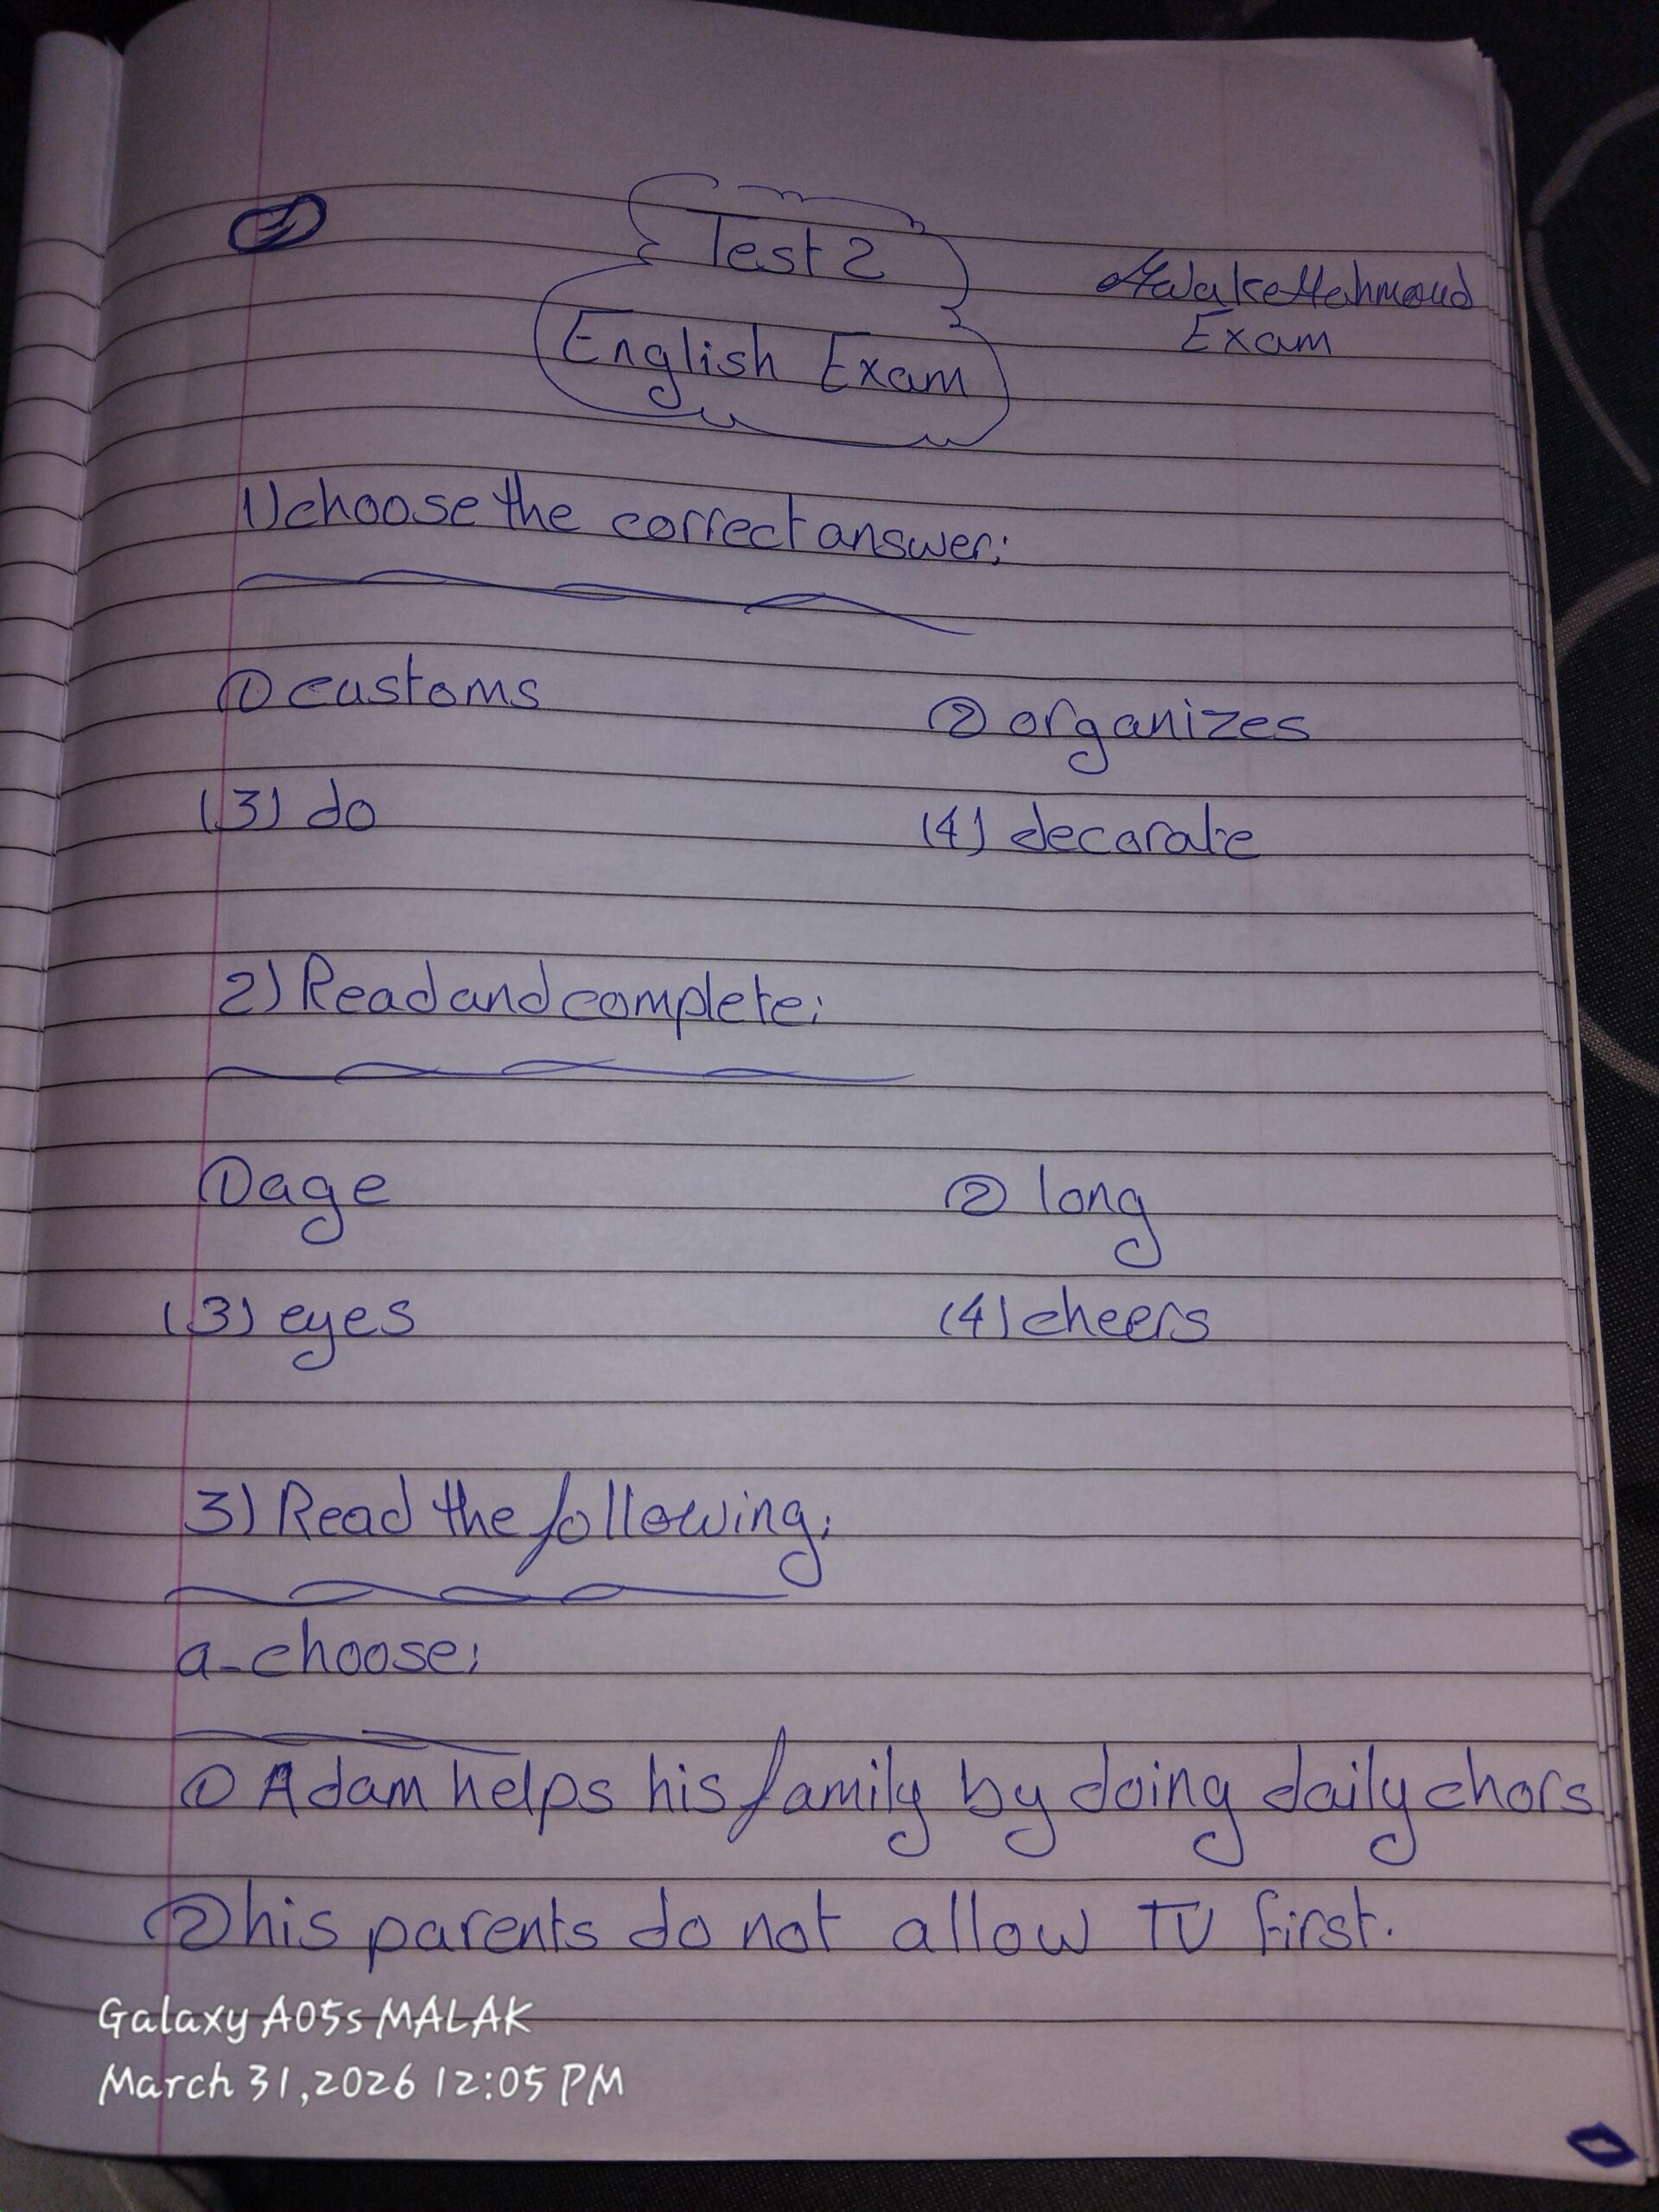 Test 2
English Exam
Mahmoud
Exam
1) choose the correct answer:
① customs ② organizes
(3) do (4) decorate
2) Read and complete:
① age ② long
(3) eyes (4) cheers
3) Read the following:
a-choose:
① Adam helps his family by doing daily chors.
② his parents do not allow TV first.
Galaxy A05s MALAK
March 31,2026 12:05 PM